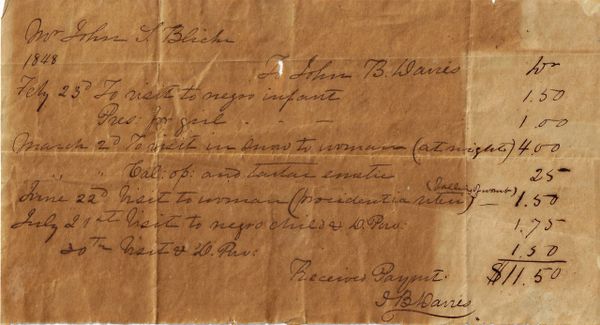 Mr John S Blick
1848
To John B. Davies Dr
Feby 23d To visit to negro infant 1.50
Pres: for girl " " 1.00
March 2d To visit in snow to woman (at night) 4.00
" " Cal: op: and tartar emetic 25
June 22d Visit to woman (procidentia uteri) – 1.50
July 21st Visit to negro child & D. Pow: 1.75
30th Visit & D. Pow: 1.50
Received Paymt. $11.50
J B Davies